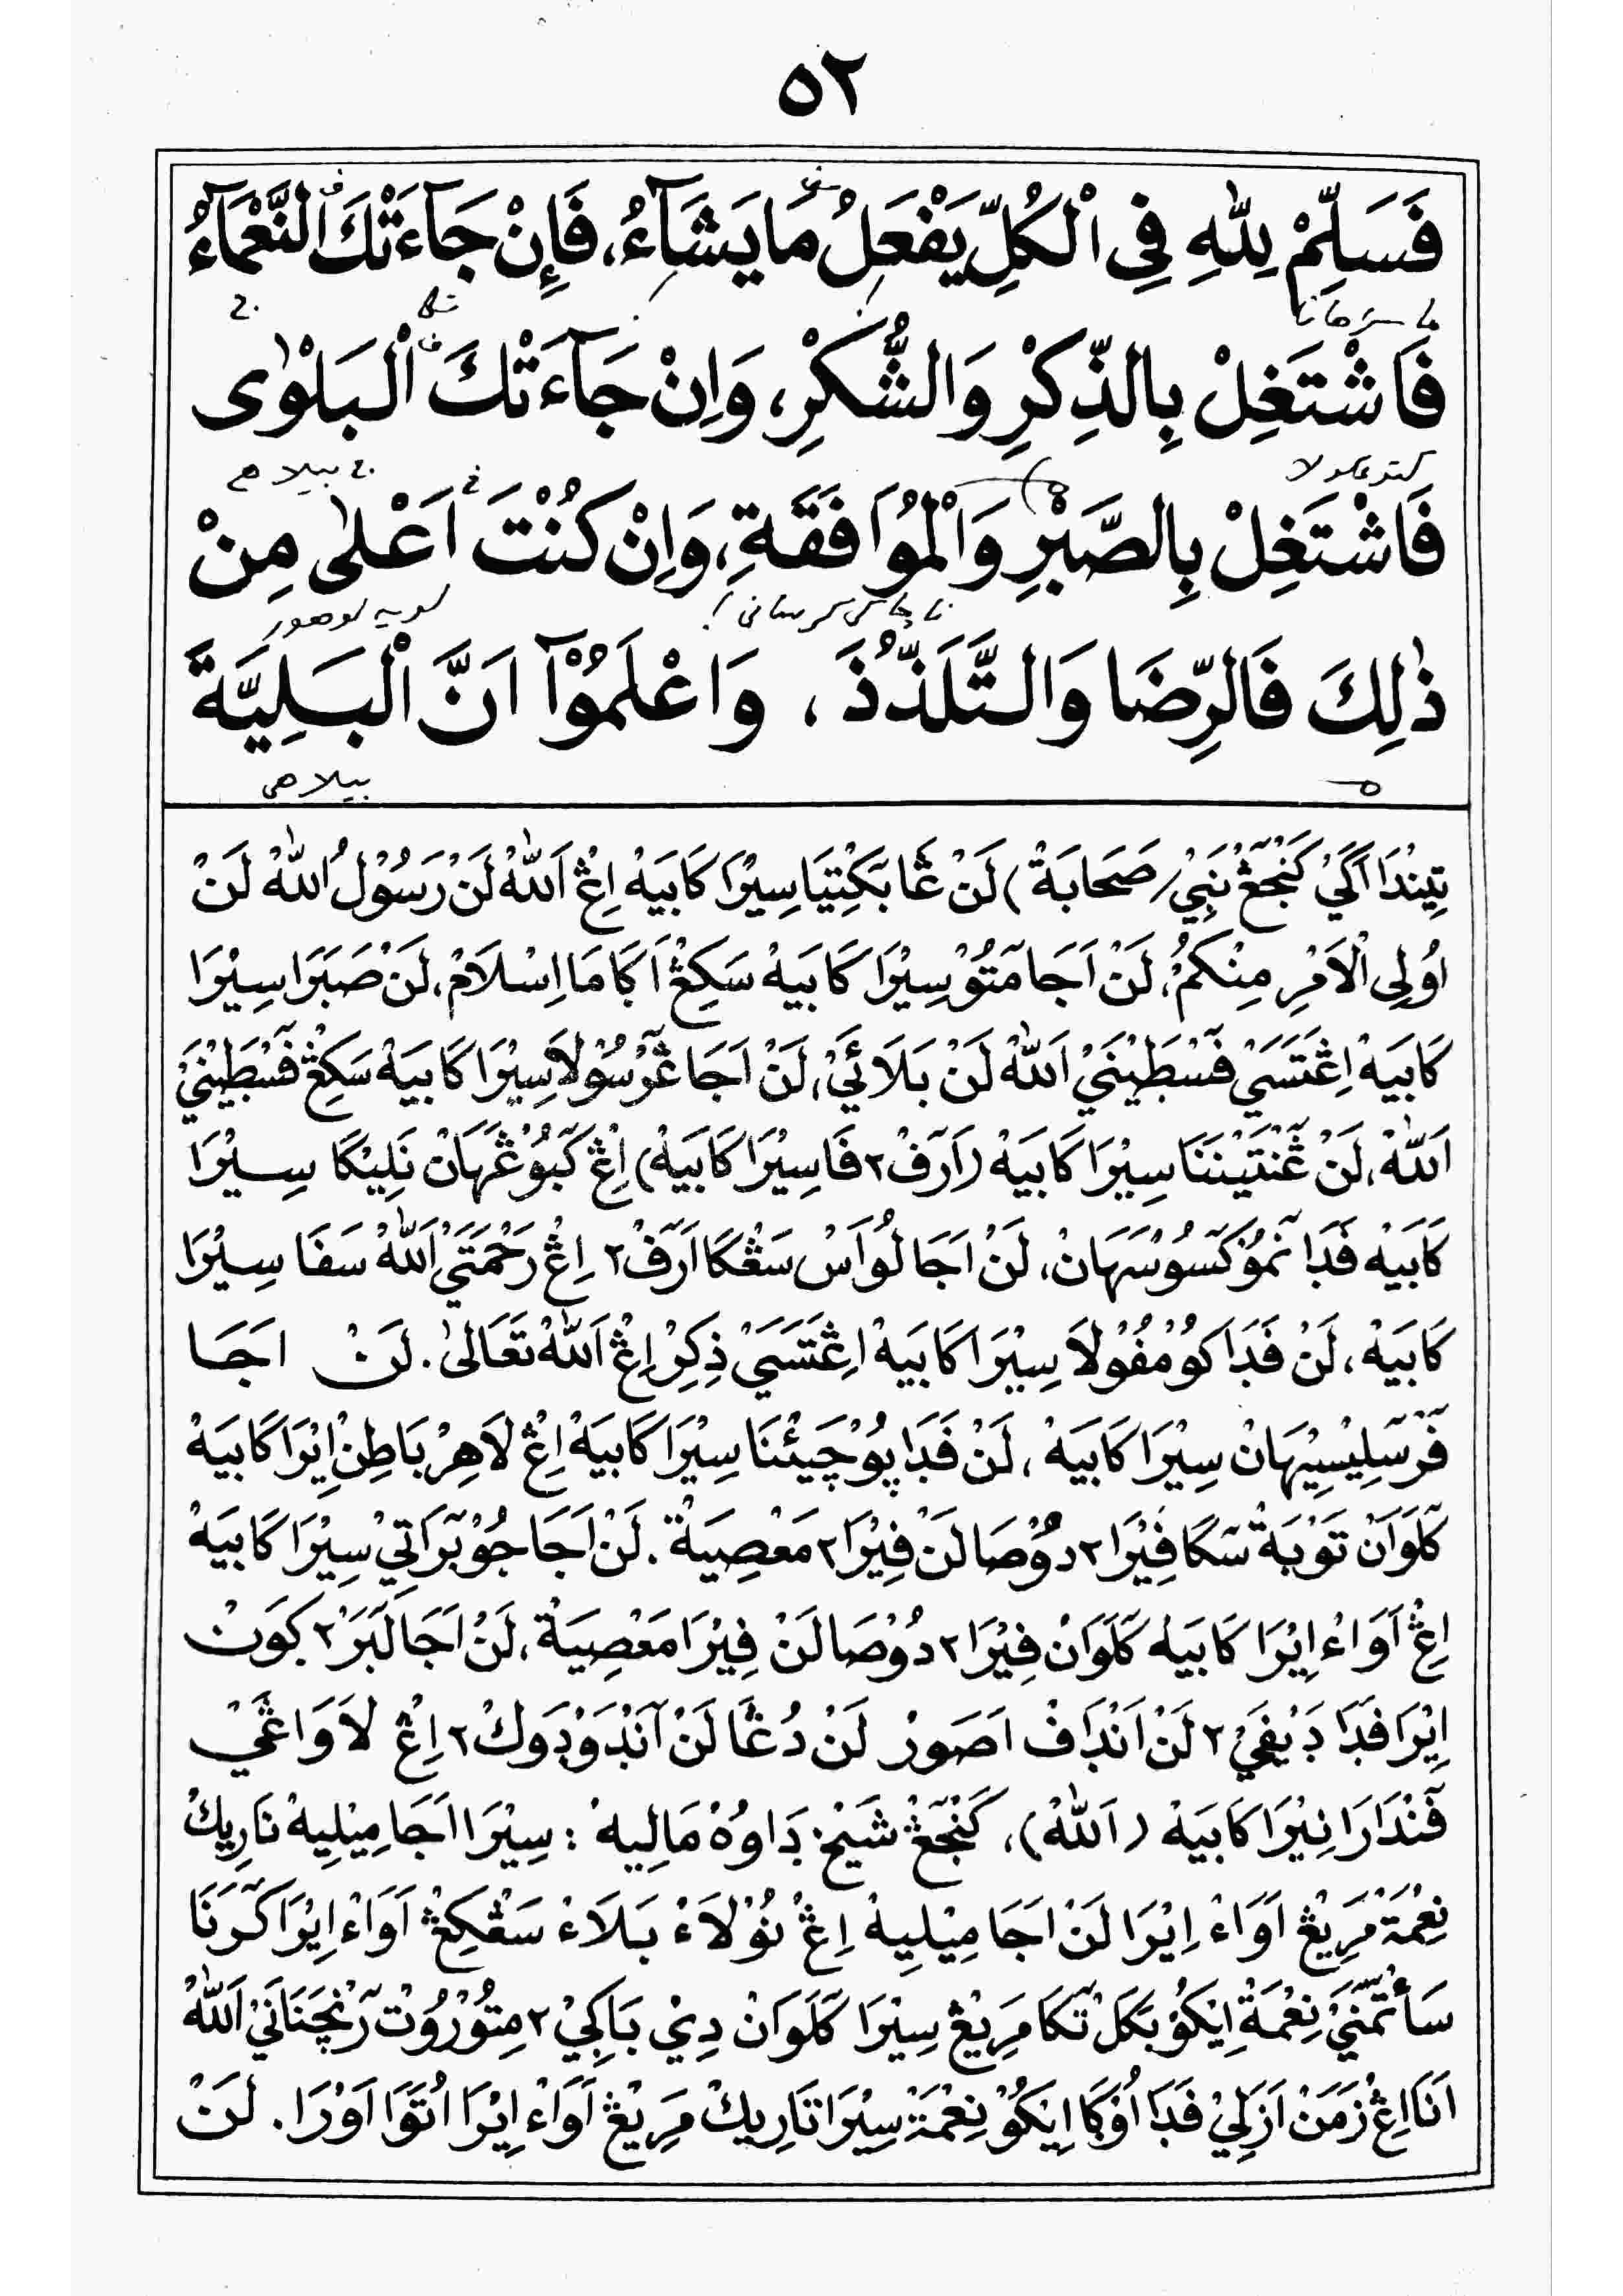 ٥٢
فَسَلِّمْ لِلّٰهِ فِى الْكُلِّ يَفْعَلُ مَا يَشَآءُ، فَإِنْ جَآءَتْكَ النَّعْمَآءُ
فَاشْتَغِلْ بِالذِّكْرِ وَالشُّكْرِ، وَاِنْ جَآءَتْكَ الْبَلْوٰى
بيلاهى
فَاشْتَغِلْ بِالصَّبْرِ وَالْمُوَافَقَةِ، وَاِنْ كُنْتَ اَعْلٰى مِنْ
لويه لوهور
ذٰلِكَ فَالرِّضَا وَالتَّلَذُّذَ، وَاعْلَمُوْآ اَنَّ الْبَلِيَّةَ
بيلاهى
تِيْنْدَاأَكَيْ كَنْجَڠْ نَبِيْ/صَحَابَةْ) لَنْ عَابَكْتِيَا سِيْرَا كَابَيْهْ اِڠْ اَللّٰهْ لَنْ رَسُوْلُ اللّٰهْ لَنْ
اُولِى الْاَمْرِ مِنْكُمْ، لَنْ اَجَا مَتُوْ سِيْرَا كَابَيْهْ سَكِڠْ اَكَامَا اِسْلَامْ، لَنْ صَبَرَا سِيْرَا
كَابَيْهْ اِڠَتَسَيْ فَسْطَيْنَيْ اَللّٰهْ لَنْ بَلَائَيْ، لَنْ اَجَا ڠَرْسُوْلَا سِيْرَا كَابَيْهْ سَكِڠْ فَسْطَيْنَيْ
اَللّٰهْ، لَنْ ڠَنْتَيْنَنَا سِيْرَا كَابَيْهْ (اَرَفْ٢ فَا سِيْرَا كَابَيْهْ) اِڠْ كَبُوْڠَهَانْ نَلِيْكَا سِيْرَا
كَابَيْهْ فَدَا نَمُوْ كَسُوْسَهَانْ، لَنْ اَجَا لُوْاَسْ سَڠْكَا اَرَفْ٢ اِڠْ رَحْمَتَيْ اَللّٰهْ سَفَا سِيْرَا
كَابَيْهْ، لَنْ فَدَا كُوْمْفُوْلَا سِيْرَا كَابَيْهْ اِڠَتَسَيْ ذِكِرْ اِڠْ اَللّٰهْ تَعَالٰى. لَنْ اَجَا
فَرْسَلِيْسِيْهَانْ سِيْرَا كَابَيْهْ، لَنْ فَدَا پُوْچَيْئَنَا سِيْرَا كَابَيْهْ اِڠْ لَاهِرْ بَاطِنْ اِيْرَا كَابَيْهْ
كَلَوَانْ تَوْبَةْ سَكَا فِيْرَا٢ دُوْصَا لَنْ فِيْرَا٢ مَعْصِيَةْ. لَنْ اَجَا جُوْبَرَاتِيْ سِيْرَا كَابَيْهْ
اِڠْ اَوَاءْ اِيْرَا كَابَيْهْ كَلَوَانْ فِيْرَا٢ دُوْصَا لَنْ فِيْرَا مَعْصِيَةْ، لَنْ اَجَا لَبَرْ٢ كَوَتْ
اِيْرَا فَدَا دَيْفَيْ٢ لَنْ اَنْدَافْ اَصَوْرْ لَنْ دُعَا لَنْ اَنْدَوْدَوكْ٢ اِڠْ لَاوَاڠَيْ
فَنْدَارَا نِيْرَا كَابَيْهْ (اَللّٰهْ)، كَنْجَڠْ شَيْخْ دَاوُهْ مَالِيهْ : سِيْرَا اَجَا مِيْلِيهْ نَارِيكْ
نِعْمَةْ مَرِيْڠْ اَوَاءْ اِيْرَا لَنْ اَجَا مِيْلِيهْ اِڠْ نُوْلَاءْ بَلَاءْ سَڠْكِڠْ اَوَاءْ اِيْرَا كَرَنَا
سَأْتَمَنَيْ نِعْمَةْ اِيْكُوْ بَكَلْ تَكَا مَرِيْڠْ سِيْرَا كَلَوَانْ دِيْ بَاكِيْ٢ مِتُوْرُوْتْ رَنْچَنَانَيْ اَللّٰهْ
اَنَا اِڠْ زَمَنْ اَزَلِيْ فَدَا اُوْكَا اِيْكُوْ نِعْمَةْ سِيْرَا تَارِيكْ مَرِيْڠْ اَوَاءْ اِيْرَا اُتَوَا اَوْرَا. لَنْ